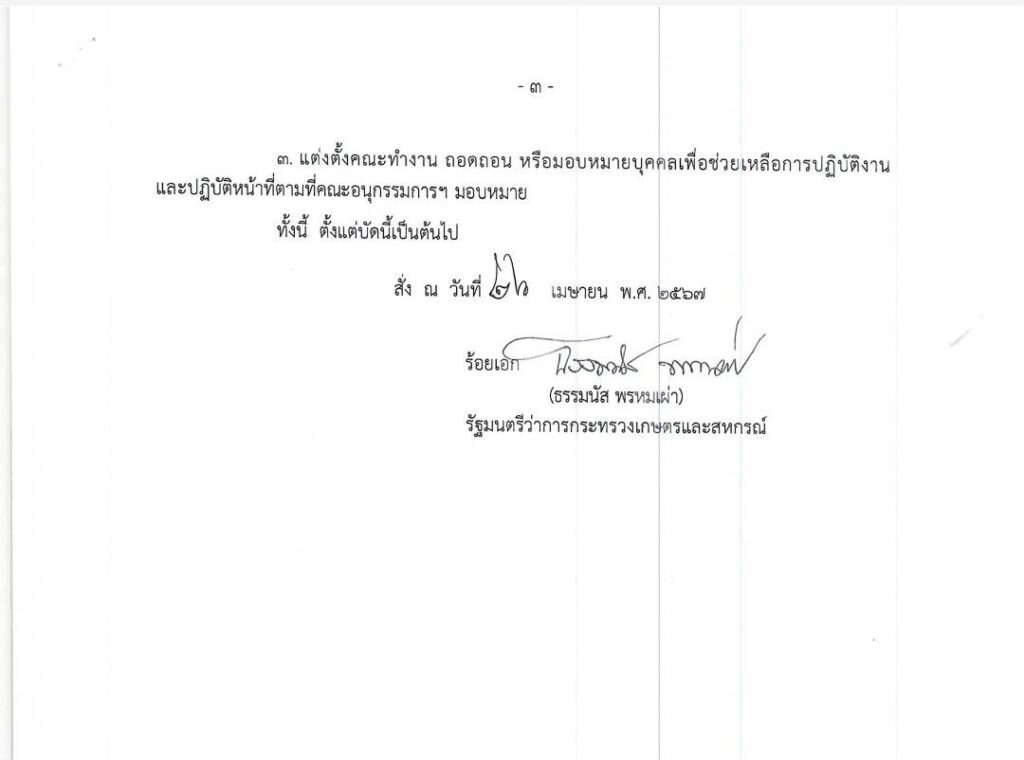 - ๓ -
๓. แต่งตั้งคณะทำงาน ถอดถอน หรือมอบหมายบุคคลเพื่อช่วยเหลือการปฏิบัติงาน
และปฏิบัติหน้าที่ตามที่คณะอนุกรรมการฯ มอบหมาย
ทั้งนี้ ตั้งแต่บัดนี้เป็นต้นไป
สั่ง ณ วันที่ เมษายน พ.ศ. ๒๕๖๗
ร้อยเอก
(ธรรมนัส พรหมเผ่า)
รัฐมนตรีว่าการกระทรวงเกษตรและสหกรณ์